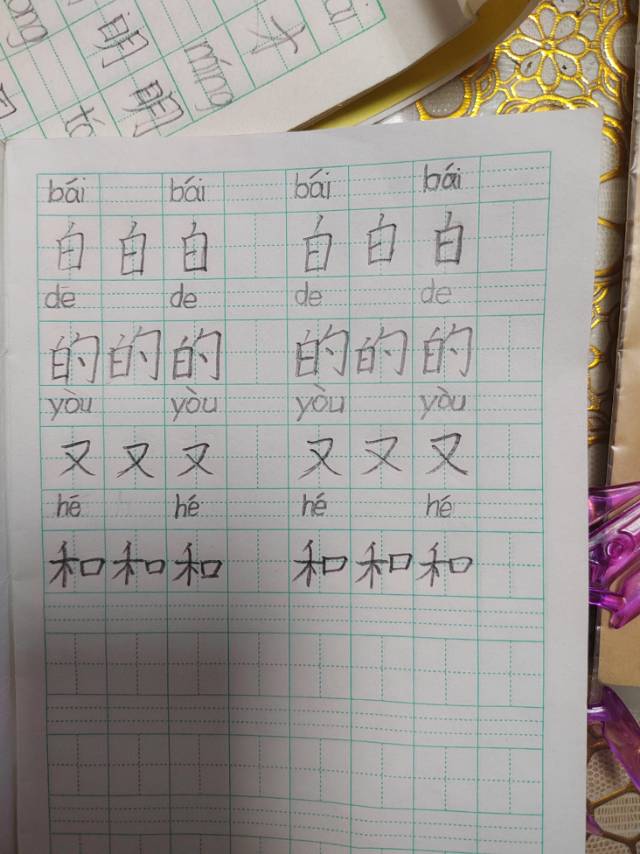 ong 明 míng 才 ái
tó 明
bái bái bái bái
白 白 白 白 白 白
de de de de
的 的 的 的 的 的
yòu yòu yòu yòu
又 又 又 又 又 又
hē hé hé hé
和 和 和 和 和 和